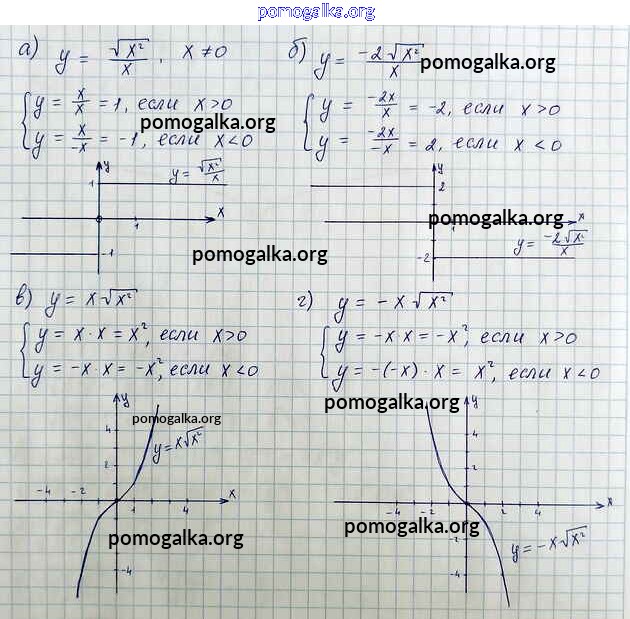 pomogalka.org
а) y = √x² / x , x ≠ 0
{ y = x/x = 1, если x > 0
y = x/-x = -1, если x < 0
pomogalka.org
y
1
y = √x² / x
x
1
-1
pomogalka.org
б) y = -2√x² / x
pomogalka.org
{ y = -2x/x = -2, если x > 0
y = -2x/-x = 2, если x < 0
y
2
x
1
pomogalka.org
-2
y = -2√x² / x
в) y = x√x²
{ y = x · x = x², если x > 0
y = -x · x = -x², если x < 0
y
pomogalka.org
4
y = x√x²
2
-4 -2 1 x
pomogalka.org
-4
г) y = -x√x²
{ y = -x · x = -x², если x > 0
y = -(-x) · x = x², если x < 0
pomogalka.org
y
4
2
-4 -2 2 4 x
pomogalka.org
-2
y = -x√x²
-4